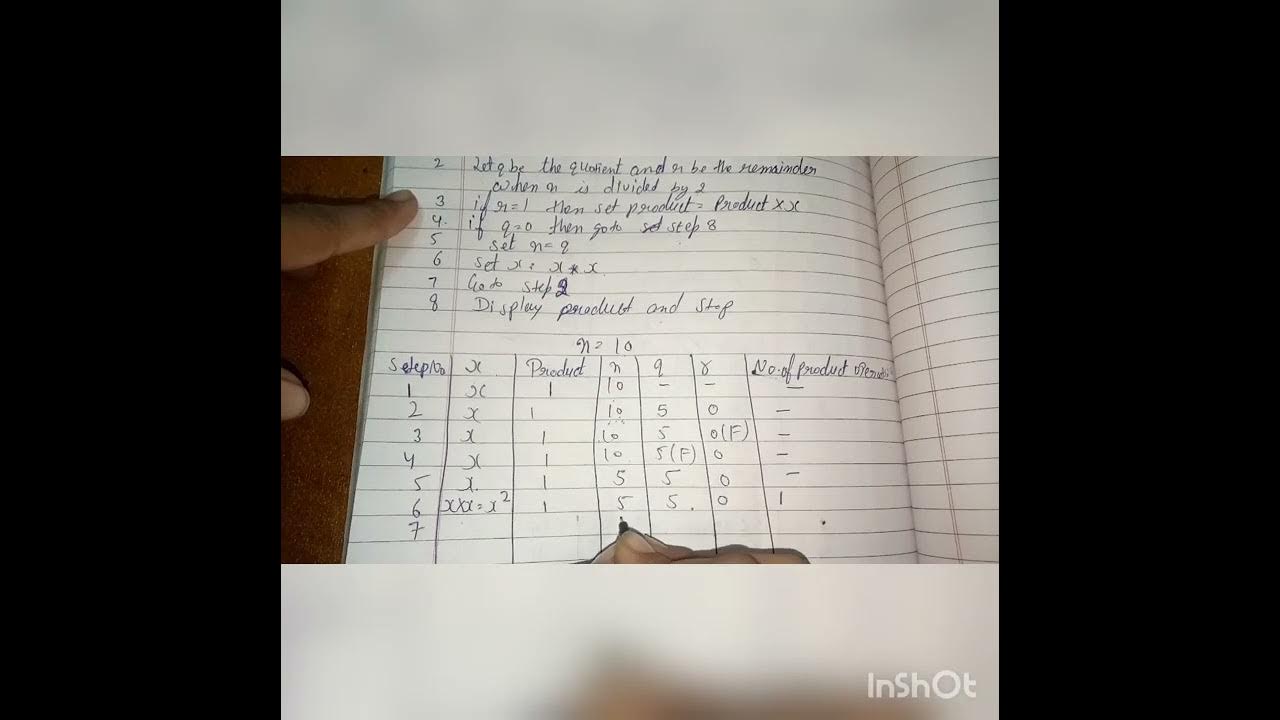 2 Let q be the quotient and r be the remainder
when n is divided by 2
3 if r=1 then set product = Product × x
4. if q=0 then go to step 8
5 set n=q
6 set x: x * x
7 Go to step 2
8 Display product and stop
n= 10
Step No x Product n q r No. of product
1 x 1 10 - - -
2 x 1 10 5 0 -
3 x 1 10 5 0(F) -
4 x 1 10 5(F) 0 -
5 x. 1 5 5 0 -
6 x×x=x² 1 5 5. 0 1
7
InShOt